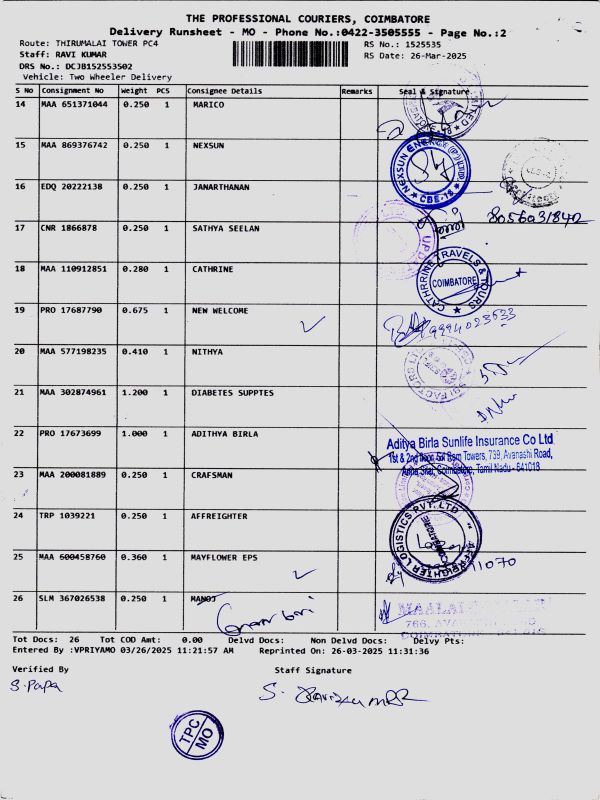 THE PROFESSIONAL COURIERS, COIMBATORE
Delivery Runsheet - MO - Phone No.:0422-3505555 - Page No.:2
Route: THIRUMALAI TOWER PC4
RS No.: 1525535
Staff: RAVI KUMAR
RS Date: 26-Mar-2025
DRS No.: DCJB152553502
Vehicle: Two Wheeler Delivery
S No Consignment No Weight PCS Consignee Details Remarks Seal & Signature
14 MAA 651371044 0.250 1 MARICO
15 MAA 869376742 0.250 1 NEXSUN
NEXSUN ENERGY (P) LTD
CBE-18
16 EDQ 20222138 0.250 1 JANARTHANAN
8056031840
17 CNR 1866878 0.250 1 SATHYA SEELAN
18 MAA 110912851 0.280 1 CATHRINE
CATHRRINE TRAVELS & TOURS
COIMBATORE
19 PRO 17687790 0.675 1 NEW WELCOME
9994023533
20 MAA 577198235 0.410 1 NITHYA
21 MAA 302874961 1.200 1 DIABETES SUPPTES
22 PRO 17673699 1.000 1 ADITHYA BIRLA
Aditya Birla Sunlife Insurance Co Ltd
1st & 2nd floor, Towers, 739, Avanashi Road,
Coimbatore, Tamil Nadu - 641018
23 MAA 200081889 0.250 1 CRAFSMAN
24 TRP 1039221 0.250 1 AFFREIGHTER
AFFREIGHTER LOGISTICS PVT. LTD
COIMBATORE
25 MAA 600458760 0.360 1 MAYFLOWER EPS
11070
26 SLM 367026538 0.250 1 MANOJ
766,
Tot Docs: 26 Tot COD Amt: 0.00 Delvd Docs: Non Delvd Docs: Delvy Pts:
Entered By :VPRIYAMO 03/26/2025 11:21:57 AM Reprinted On: 26-03-2025 11:31:36
Verified By
Staff Signature
S. Papa
S. Ravikumar
TPC
MO